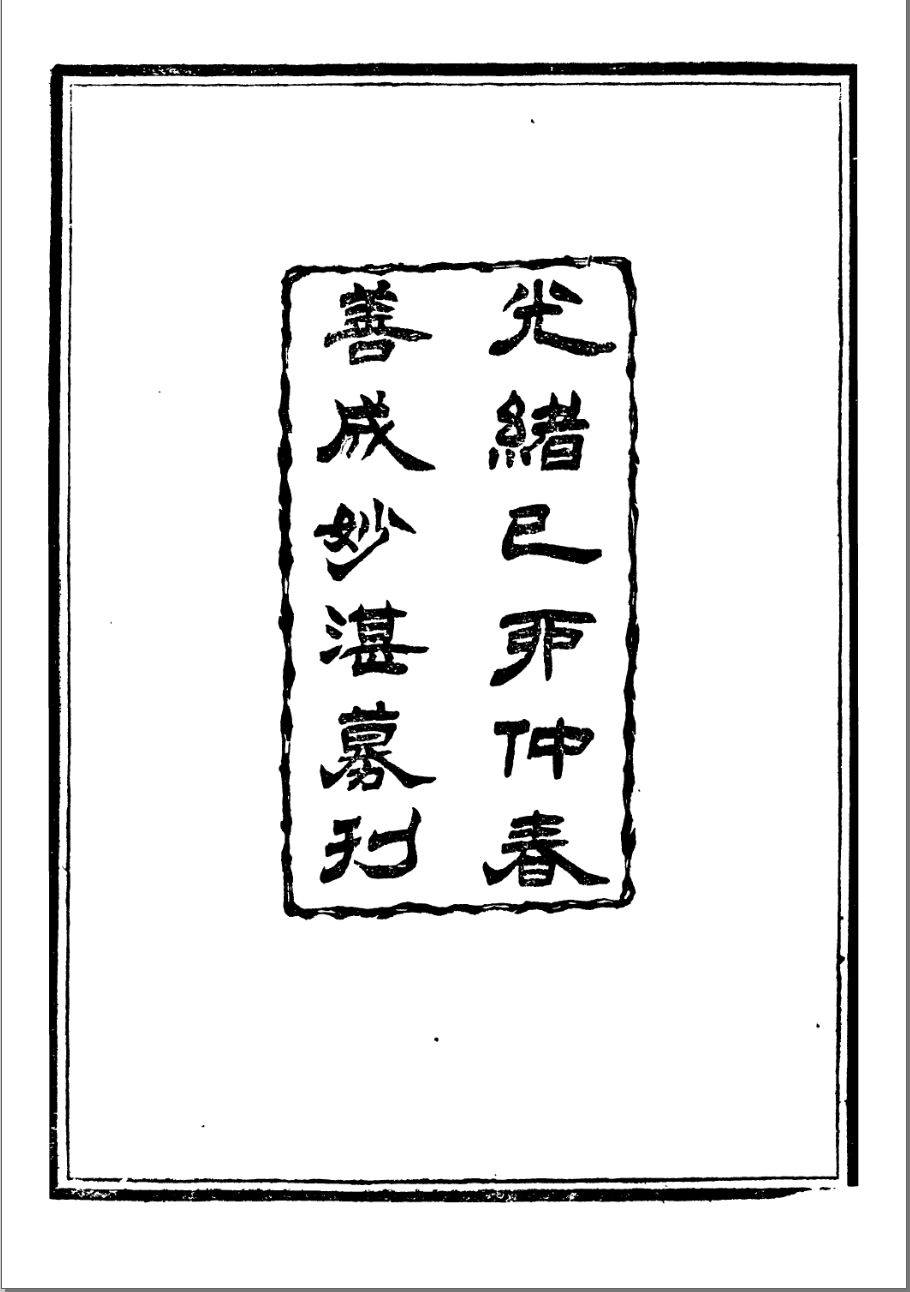 光緒己卯仲春
善成妙湛募刊